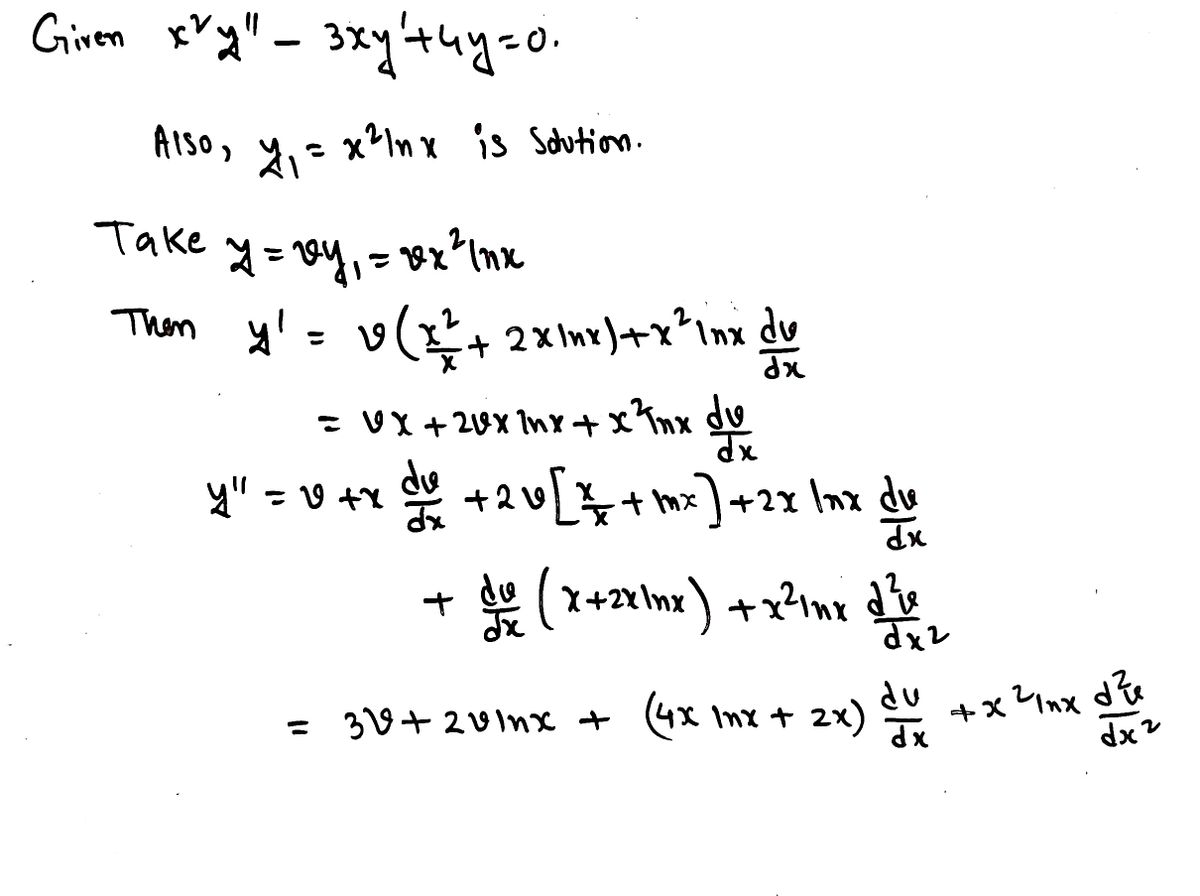 Given x²y'' - 3xy' + 4y = 0.
Also, y₁ = x² ln x is Solution.
Take y = vy₁ = vx² lnx
Then y' = v(x²/x + 2x lnx) + x² lnx dv/dx
= vx + 2vx lnx + x² lnx dv/dx
y'' = v + x dv/dx + 2v[x/x + lnx] + 2x lnx dv/dx
+ dv/dx (x + 2x lnx) + x² lnx d²v/dx²
= 3v + 2v lnx + (4x lnx + 2x) dv/dx + x² lnx d²v/dx²